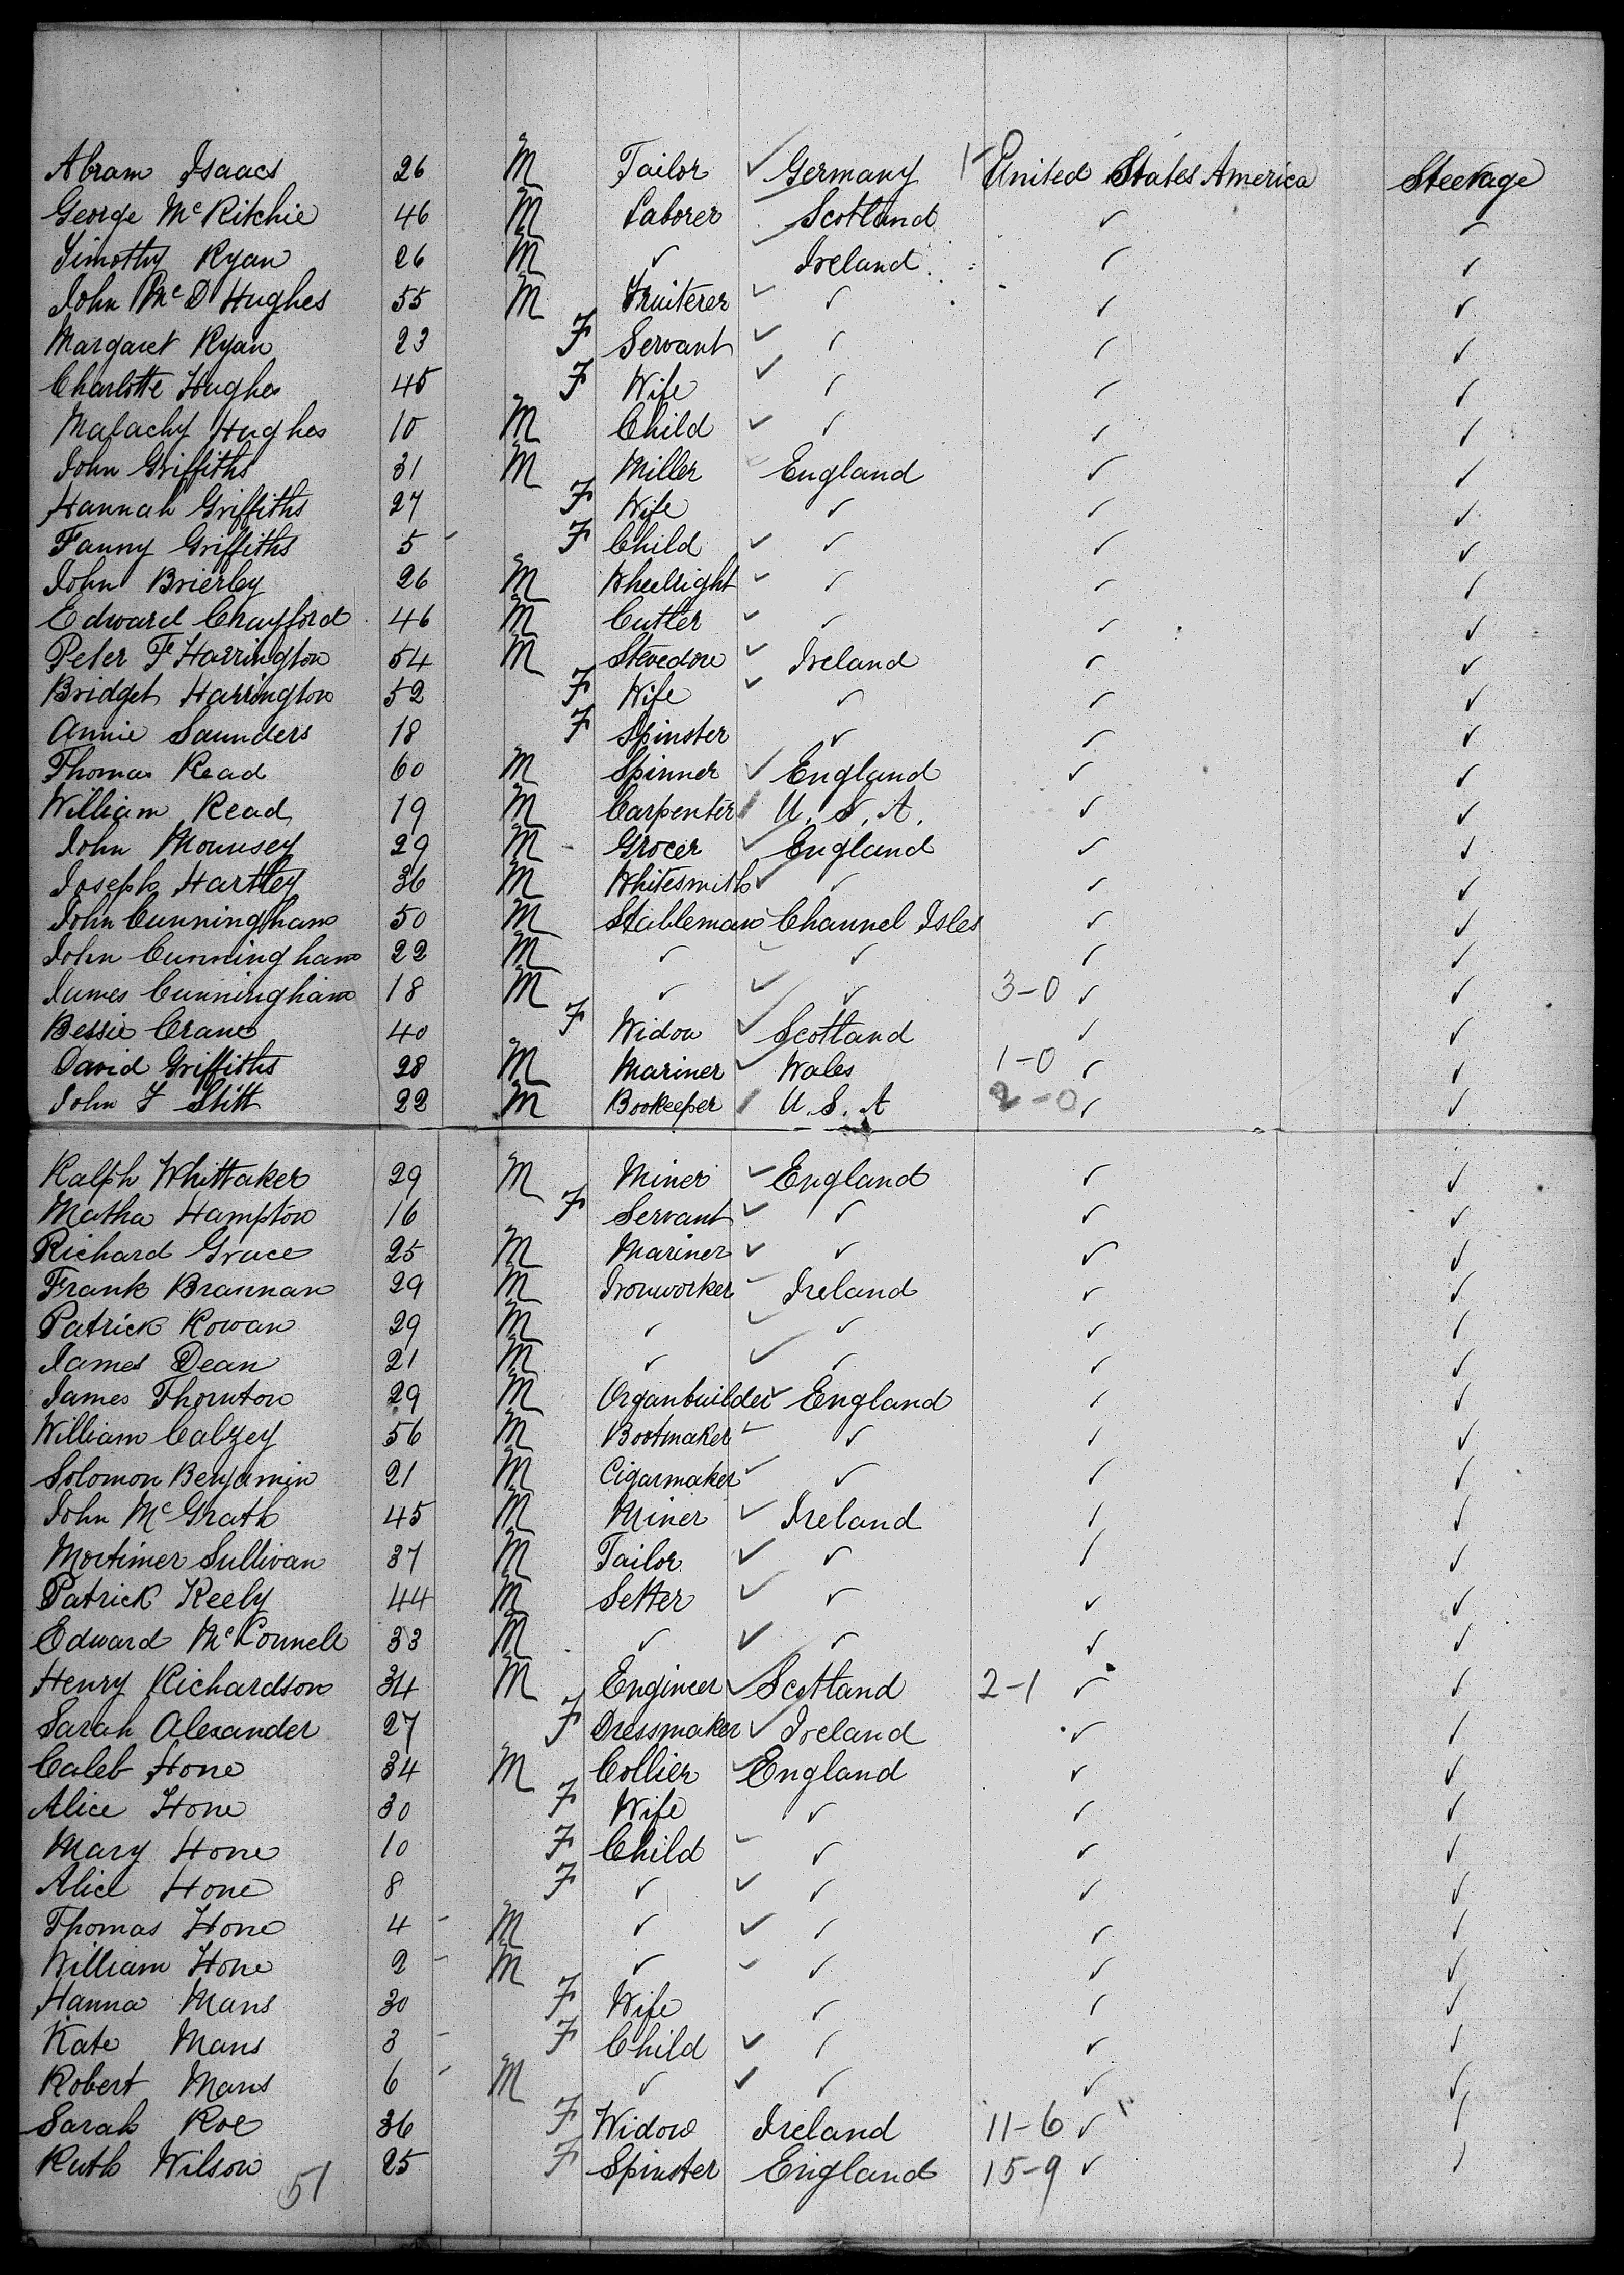 Abram Isaacs 26 M Tailor ✓ Germany United States America Steerage
George McRitchie 46 M Laborer Scotland ✓ ✓
Timothy Ryan 26 M ✓ Ireland ✓ ✓
John McD Hughes 55 M Fruiterer ✓ ✓ ✓ ✓
Margaret Ryan 23 F Servant ✓ ✓ ✓ ✓
Charlotte Hughes 45 F Wife ✓ ✓ ✓ ✓
Malachy Hughes 10 M Child ✓ ✓ ✓ ✓
John Griffiths 31 M Miller England ✓ ✓
Hannah Griffiths 27 F Wife ✓ ✓ ✓
Fanny Griffiths 5 F Child ✓ ✓ ✓ ✓
John Brierley 26 M Wheelright ✓ ✓ ✓ ✓
Edward Chayfford 46 M Cutler ✓ ✓ ✓ ✓
Peter F Harrington 54 M Stevedore ✓ Ireland ✓ ✓
Bridget Harrington 52 F Wife ✓ ✓ ✓ ✓
Annie Saunders 18 F Spinster ✓ ✓ ✓
Thomas Read 60 M Spinner ✓ England ✓ ✓
William Read 19 M Carpenter U. S. A. ✓ ✓
John Mounsey 29 M Grocer ✓ England ✓ ✓
Joseph Hartley 36 M Whitesmith ✓ ✓ ✓ ✓
John Cunningham 50 M Stableman Channel Isles ✓ ✓
John Cunningham 22 M ✓ ✓ ✓ ✓
James Cunningham 18 M ✓ ✓ ✓ 3-0 ✓ ✓
Bessie Crane 40 F Widow ✓ Scotland ✓ ✓
David Griffiths 28 M Mariner ✓ Wales 1-0 ✓ ✓
John F Stitt 22 M Bookeeper U. S. A 2-0 ✓ ✓
Ralph Whittaker 29 M Miner ✓ England ✓ ✓
Matha Hampton 16 F Servant ✓ ✓ ✓ ✓
Richard Grace 25 M Mariner ✓ ✓ ✓ ✓
Frank Brannan 29 M Ironworker ✓ Ireland ✓ ✓
Patrick Rowan 29 M ✓ ✓ ✓ ✓ ✓
James Dean 21 M ✓ ✓ ✓ ✓ ✓
James Thornton 29 M Organbuilder ✓ England ✓ ✓
William Calzey 56 M Bootmaker ✓ ✓ ✓ ✓
Solomon Benjamin 21 M Cigarmaker ✓ ✓ ✓ ✓
John McGrath 45 M Miner ✓ Ireland ✓ ✓
Mortimer Sullivan 37 M Tailor ✓ ✓ ✓ ✓
Patrick Keely 44 M Setter ✓ ✓ ✓ ✓
Edward McConnell 33 M ✓ ✓ ✓ ✓ ✓
Henry Richardson 34 M Engineer ✓ Scotland 2-1 ✓ ✓
Sarah Alexander 27 F Dressmaker ✓ Ireland ✓ ✓
Caleb Hone 34 M Collier ✓ England ✓ ✓
Alice Hone 30 F Wife ✓ ✓ ✓
Mary Hone 10 F Child ✓ ✓ ✓ ✓
Alice Hone 8 F ✓ ✓ ✓ ✓ ✓
Thomas Hone 4 M ✓ ✓ ✓ ✓ ✓
William Hone 2 M ✓ ✓ ✓ ✓ ✓
Hanna Mans 30 F Wife ✓ ✓ ✓
Kate Mans 3 F Child ✓ ✓ ✓ ✓
Robert Mans 6 M ✓ ✓ ✓ ✓ ✓
Sarah Roe 36 F Widow Ireland 11-6 ✓ ✓
Ruth Wilson 25 F Spinster England 15-9 ✓ ✓
51